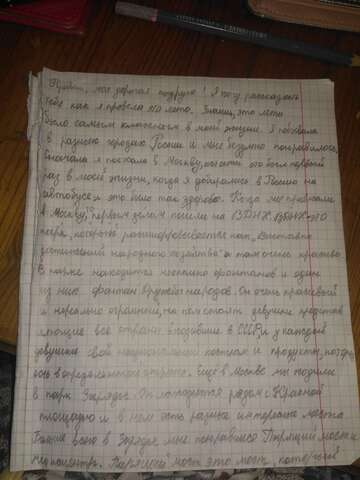 Привет, моя дорогая подруга! Я хочу рассказать
тебе как я провела это лето. Знаешь, это лето
было самым классным в моей жизни. Я побывала
в разных городах России и мне безумно понравилось.
Вначале я поехала в Москву, кстати это был первый
раз в моей жизни, когда я добиралась в Россию на
автобусе, и это было так здорово. Когда мы приехали
в Москву, первым делом пошли на ВДНХ. ВДНХ-это
парк, который расшифровывается как „Выставка
достижений народного хозяйства" и там очень красиво.
В парке находится несколько фонтанов и один
из них фонтан дружбы народов. Он очень красивый
и нереально огромный, на нём стоят девушки представ
ляющие все страны входившие в СССР, и у каждой
девушки свой национальный костюм и продукты, которые
есть в определённой стране. Ещё в Москве мы ходили
в парк Зарядье. Он находится рядом с Красной
площадью и в нём есть разные интересные места
Больше всего в Зарядье мне понравился Парящий мост и
Парящий мост это мост, который